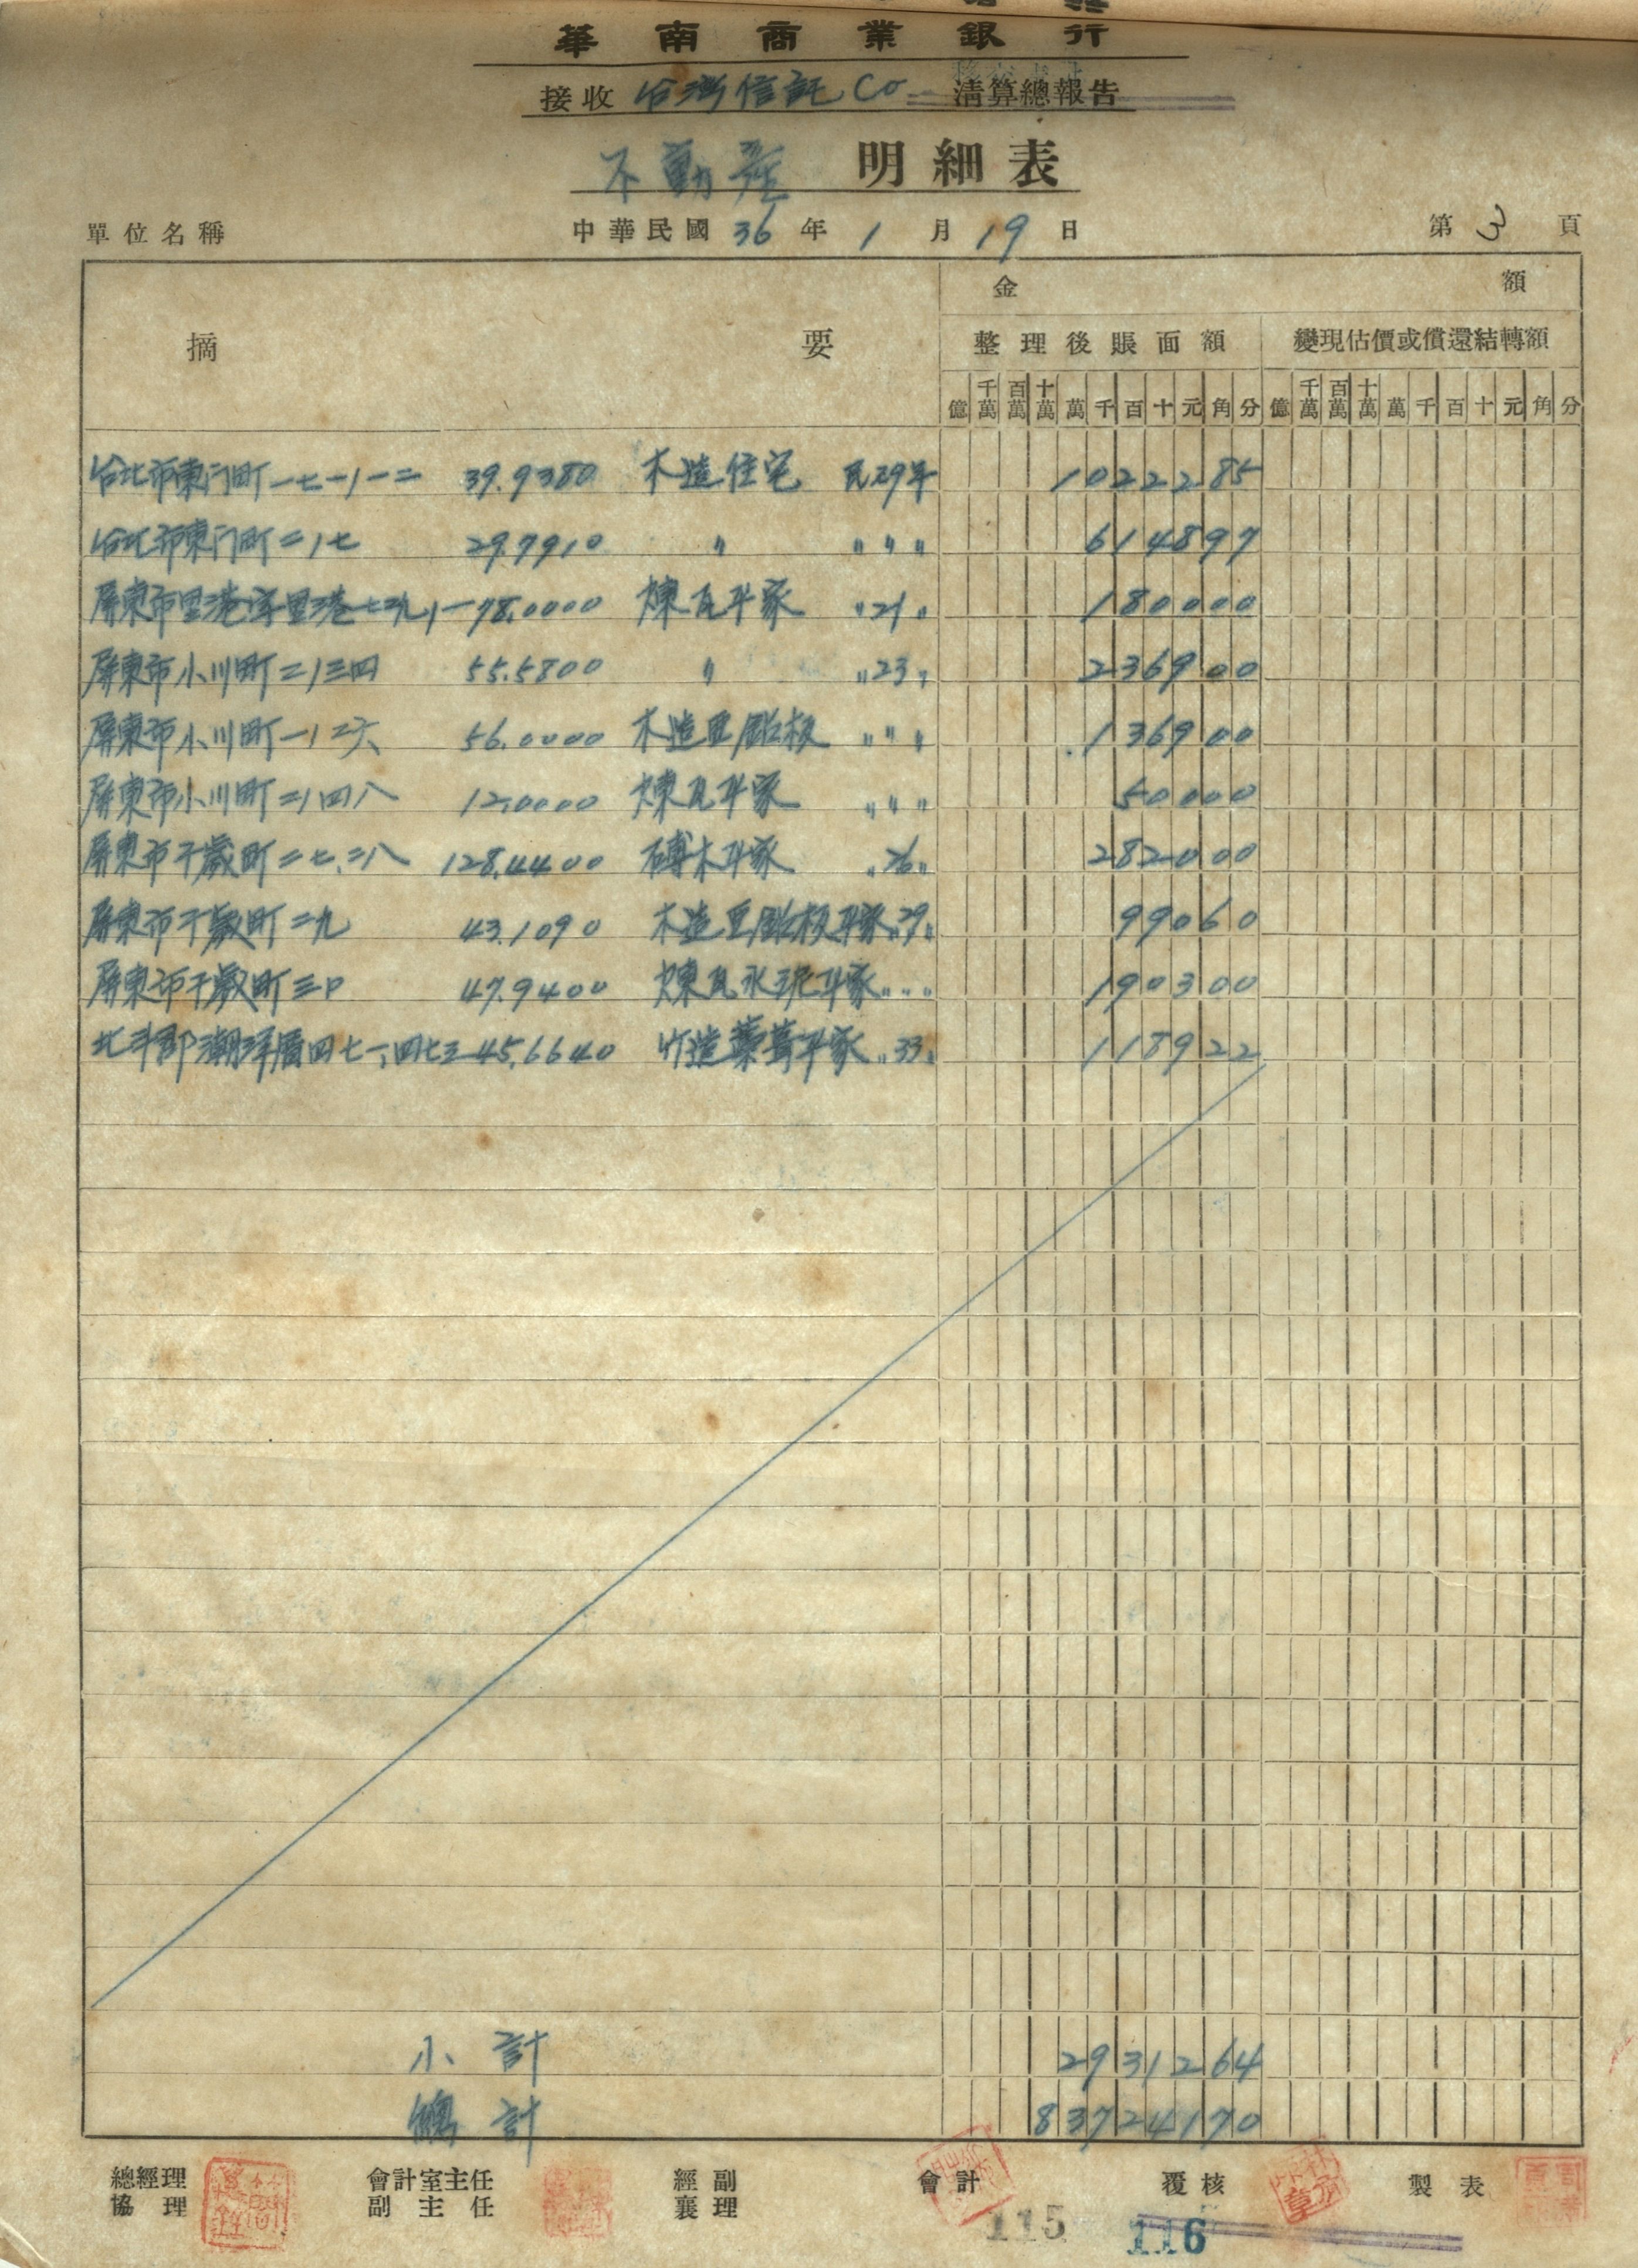 華南商業銀行
接收 台灣信託Co 清算總報告
不動產 明細表
單位名稱 中華民國 36 年 1 月 19 日 第 3 頁
摘要 金額
整理後賬面額 變現估價或償還結轉額
億 千萬 百萬 十萬 萬 千 百 十 元 角 分 億 千萬 百萬 十萬 萬 千 百 十 元 角 分
台北市東门町一七一ノ一二 39.9380 木造住宅 民29年 10222 85
台北市東门町二ノ七 29.7910 〃 〃〃〃 6148 97
屏東市里港字里港七三九ノ一 78.0000 煉瓦斗家 〃21〃 1800 00
屏東市小川町二ノ三四 55.5800 〃 〃23〃 2369 00
屏東市小川町一ノ二六 56.0000 木造亜鉛板 〃〃〃 1369 00
屏東市小川町二ノ四八 12.0000 煉瓦斗家 〃〃〃 500 00
屏東市千歲町二七、二八 128.4400 磚木斗家 〃26〃 2820 00
屏東市千歲町二九 43.1090 木造亜鉛板斗家 〃29〃 990 60
屏東市千歲町三〇 47.9400 煉瓦水泥斗家 〃〃〃 1903 00
北斗郡潮洋厝四七一、四七三 45.6640 竹造藁葺斗家 〃33〃 1189 22
小計 29312 64
總計 837241 70
總經理 會計室主任 經副 會計 覆核 製表
協理 副主任 襄理
115 116